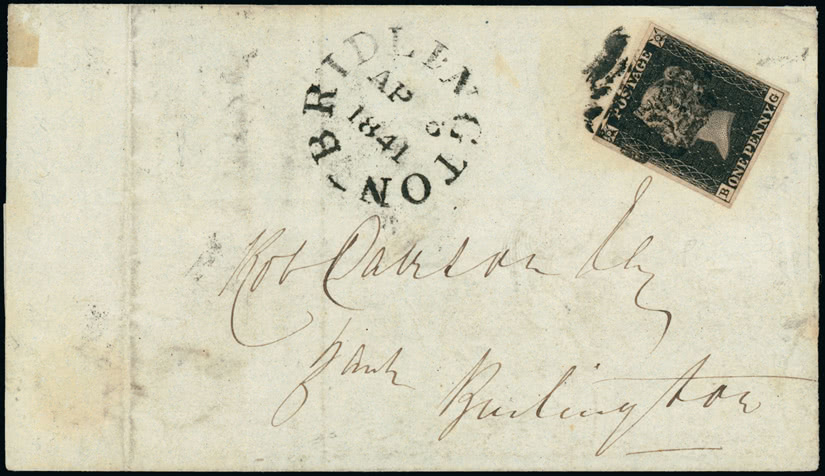 BRIDLINGTON
AP 6
1841
POSTAGE
B ONE PENNY G
Rob Davison Esq
Bank
Burlington